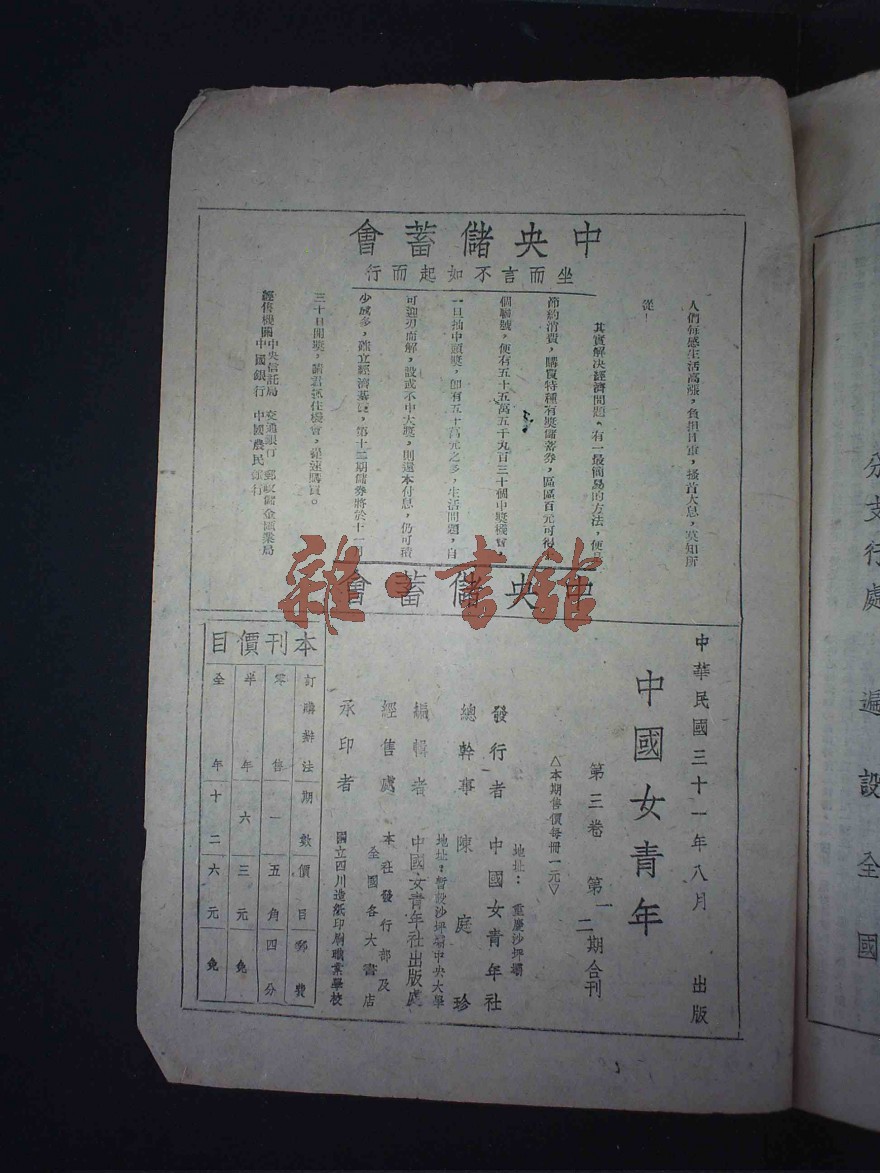 中央儲蓄會
坐而言不如起而行
人們每感生活高漲，負担日重，搔首太息，莫知所
從！
其實解决經濟問題，有一最簡易的方法，便是
節約消費，購買特種有獎儲蓄券，區區百元可得
個聯號，便有五十五萬五千九百三十個中獎機會，
一旦抽中頭獎，卽有五十萬元之多，生活問題，自
可迎刃而解，設或不中大獎，則還本付息，仍可積
少成多，確立經濟基礎，第十二期儲券將於十一月
三十日開獎，請君抓住機會，從速購買。
經售機關 中央信託局 交通銀行 郵政儲金匯業局
中國銀行 中國農民銀行
中央儲蓄會
雜·書館
中華民國三十一年八月 出版
中國女青年
第三卷 第一二期合刊
△本期售價每冊一元▽
地址：重慶沙坪壩
發行者 中國女青年社
總幹事 陳庭珍
地址：暫設沙坪壩中央大學
編輯者 中國女青年社出版處
經售處 本社發行部及
全國各大書店
承印者 國立四川造紙印刷職業學校
本刊價目
訂購辦法 期數 價目 郵費
零售 一 五角 四分
半年 六 三元 免
全年 十二 六元 免
分支行處 遍設全國